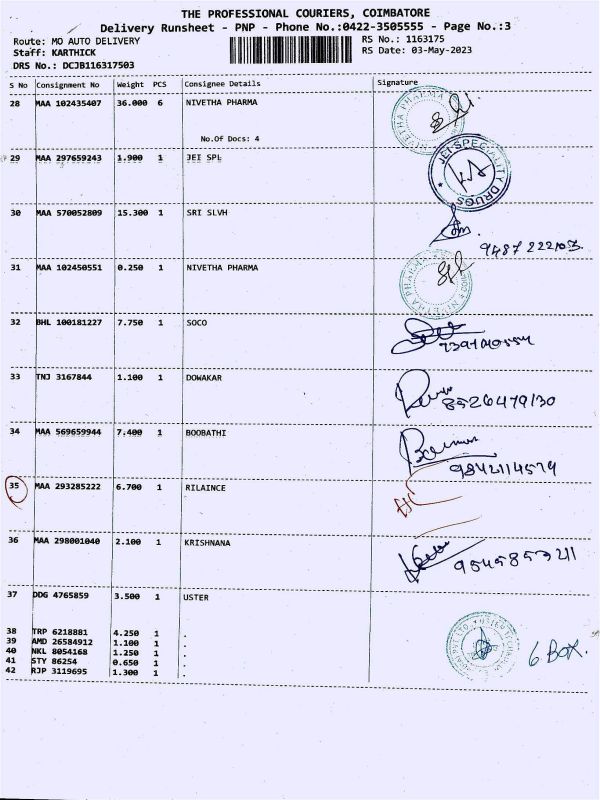 THE PROFESSIONAL COURIERS, COIMBATORE
Delivery Runsheet - PNP - Phone No.:0422-3505555 - Page No.:3
Route: MO AUTO DELIVERY
RS No.: 1163175
Staff: KARTHICK
RS Date: 03-May-2023
DRS No.: DCJB116317503
S No Consignment No Weight PCS Consignee Details Signature
28 MAA 102435407 36.000 6 NIVETHA PHARMA
No.Of Docs: 4
NIVETHA PHARMA
29 MAA 297659243 1.900 1 JEI SPL
JEI SPECIALITY DRUGS
30 MAA 570052809 15.300 1 SRI SLVH
9487 222103
31 MAA 102450551 0.250 1 NIVETHA PHARMA
NIVETHA PHARMA
32 BHL 100181227 7.750 1 SOCO
33 TNJ 3167844 1.100 1 DOWAKAR
8526479130
34 MAA 569659944 7.400 1 BOOBATHI
9842114579
35 MAA 293285222 6.700 1 RILAINCE
36 MAA 298001040 2.100 1 KRISHNANA
37 DDG 4765859 3.500 1 USTER
38 TRP 6218881 4.250 1 .
39 AMD 26584912 1.100 1 .
40 NKL 8054168 1.250 1 .
41 STY 86254 0.650 1 .
42 RJP 3119695 1.300 1 .
6 BOX.